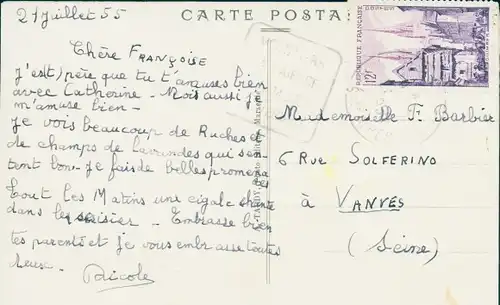 CARTE POSTA
27 juillet 55
Chère FRANÇOISE
J'espère que tu t'amuses bien
avec Catherine - Mois aussi je
m'amuse bien -
Je vois beaucoup de Ruches et
de champs de lavandes qui sen-
tent bon. Je fais de belles promenades
Tout les Matins une cigale chante
dans le cerisier - Embrasse bien
tes parents et je vous embrasse toutes
deux -
Nicole
RÉPUBLIQUE FRANÇAISE
12F
Mademoiselle F. Barbier
6 Rue SOLFERINO
à VANVES
(Seine)